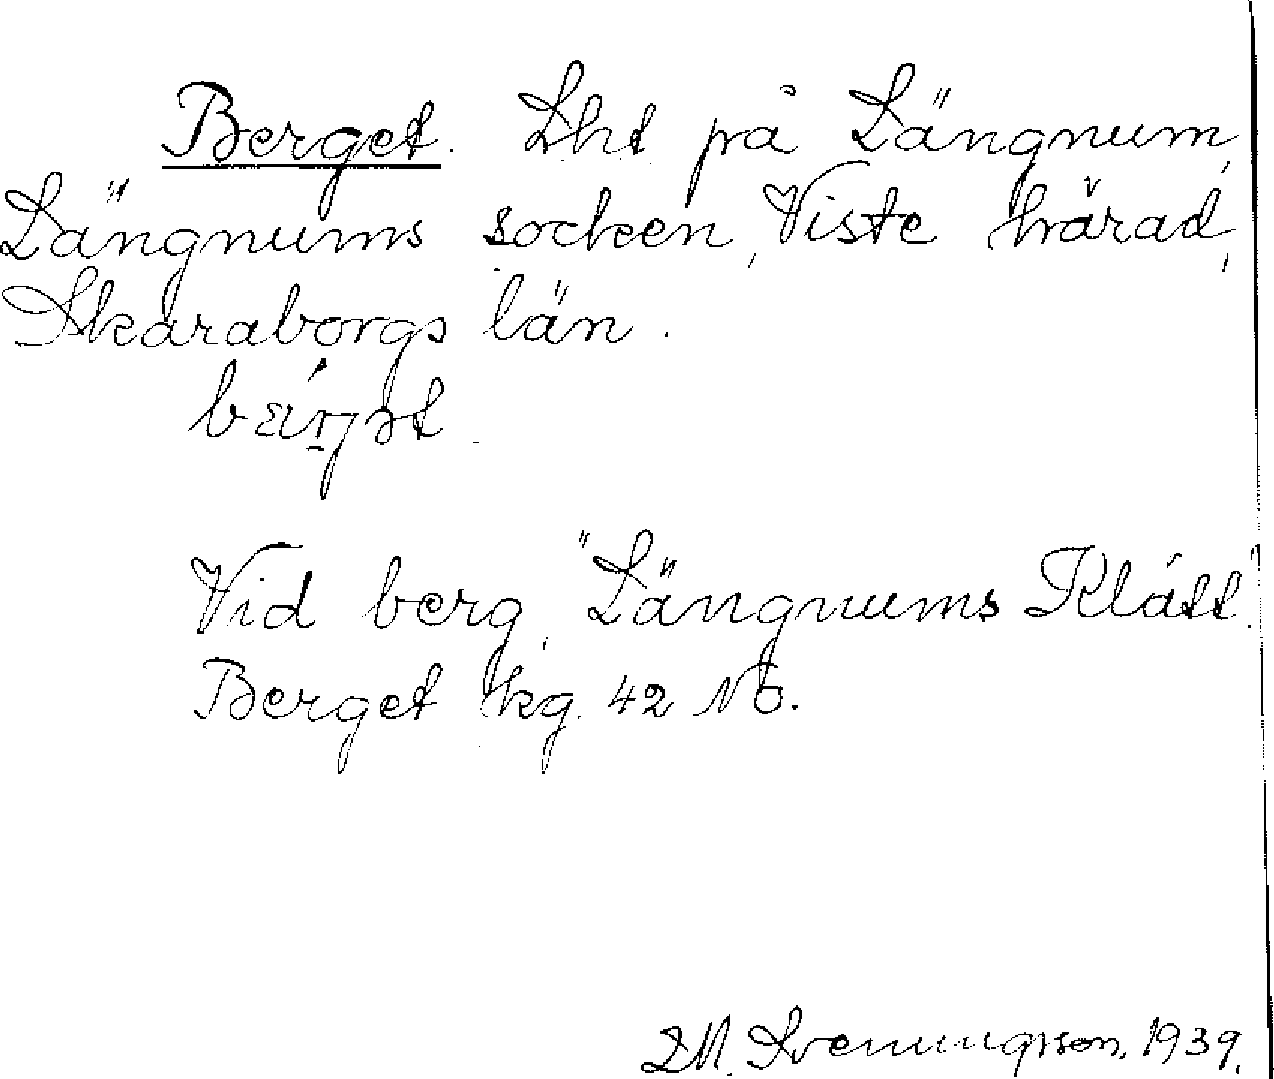 Berget. Lht på Längnum,
Längnums socken, Viste härad,
Skaraborgs län.
Vid berg, "Längnums Klátt".
Berget kg. 42 NO.
Svenungsson. 1939.